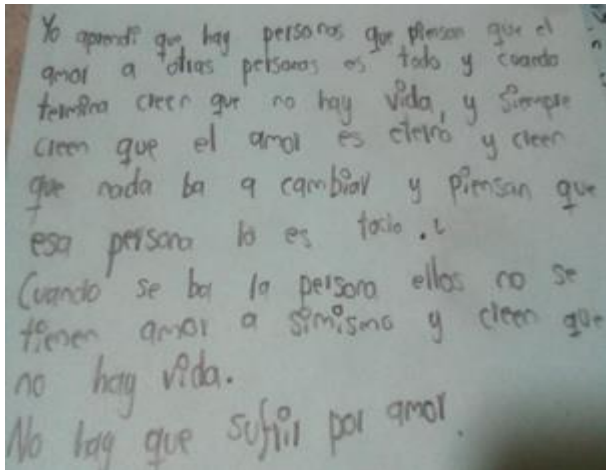 Yo aprendi que hay personas que piensan que el
amor a otras personas es todo y cuando
termina creen que no hay vida, y siempre
creen que el amor es eterno y creen
que nada ba a cambiar y piensan que
esa persona lo es todo.
Cuando se ba la persona ellos no se
tienen amor a simismo y creen que
no hay vida.
No hay que sufrir por amor.